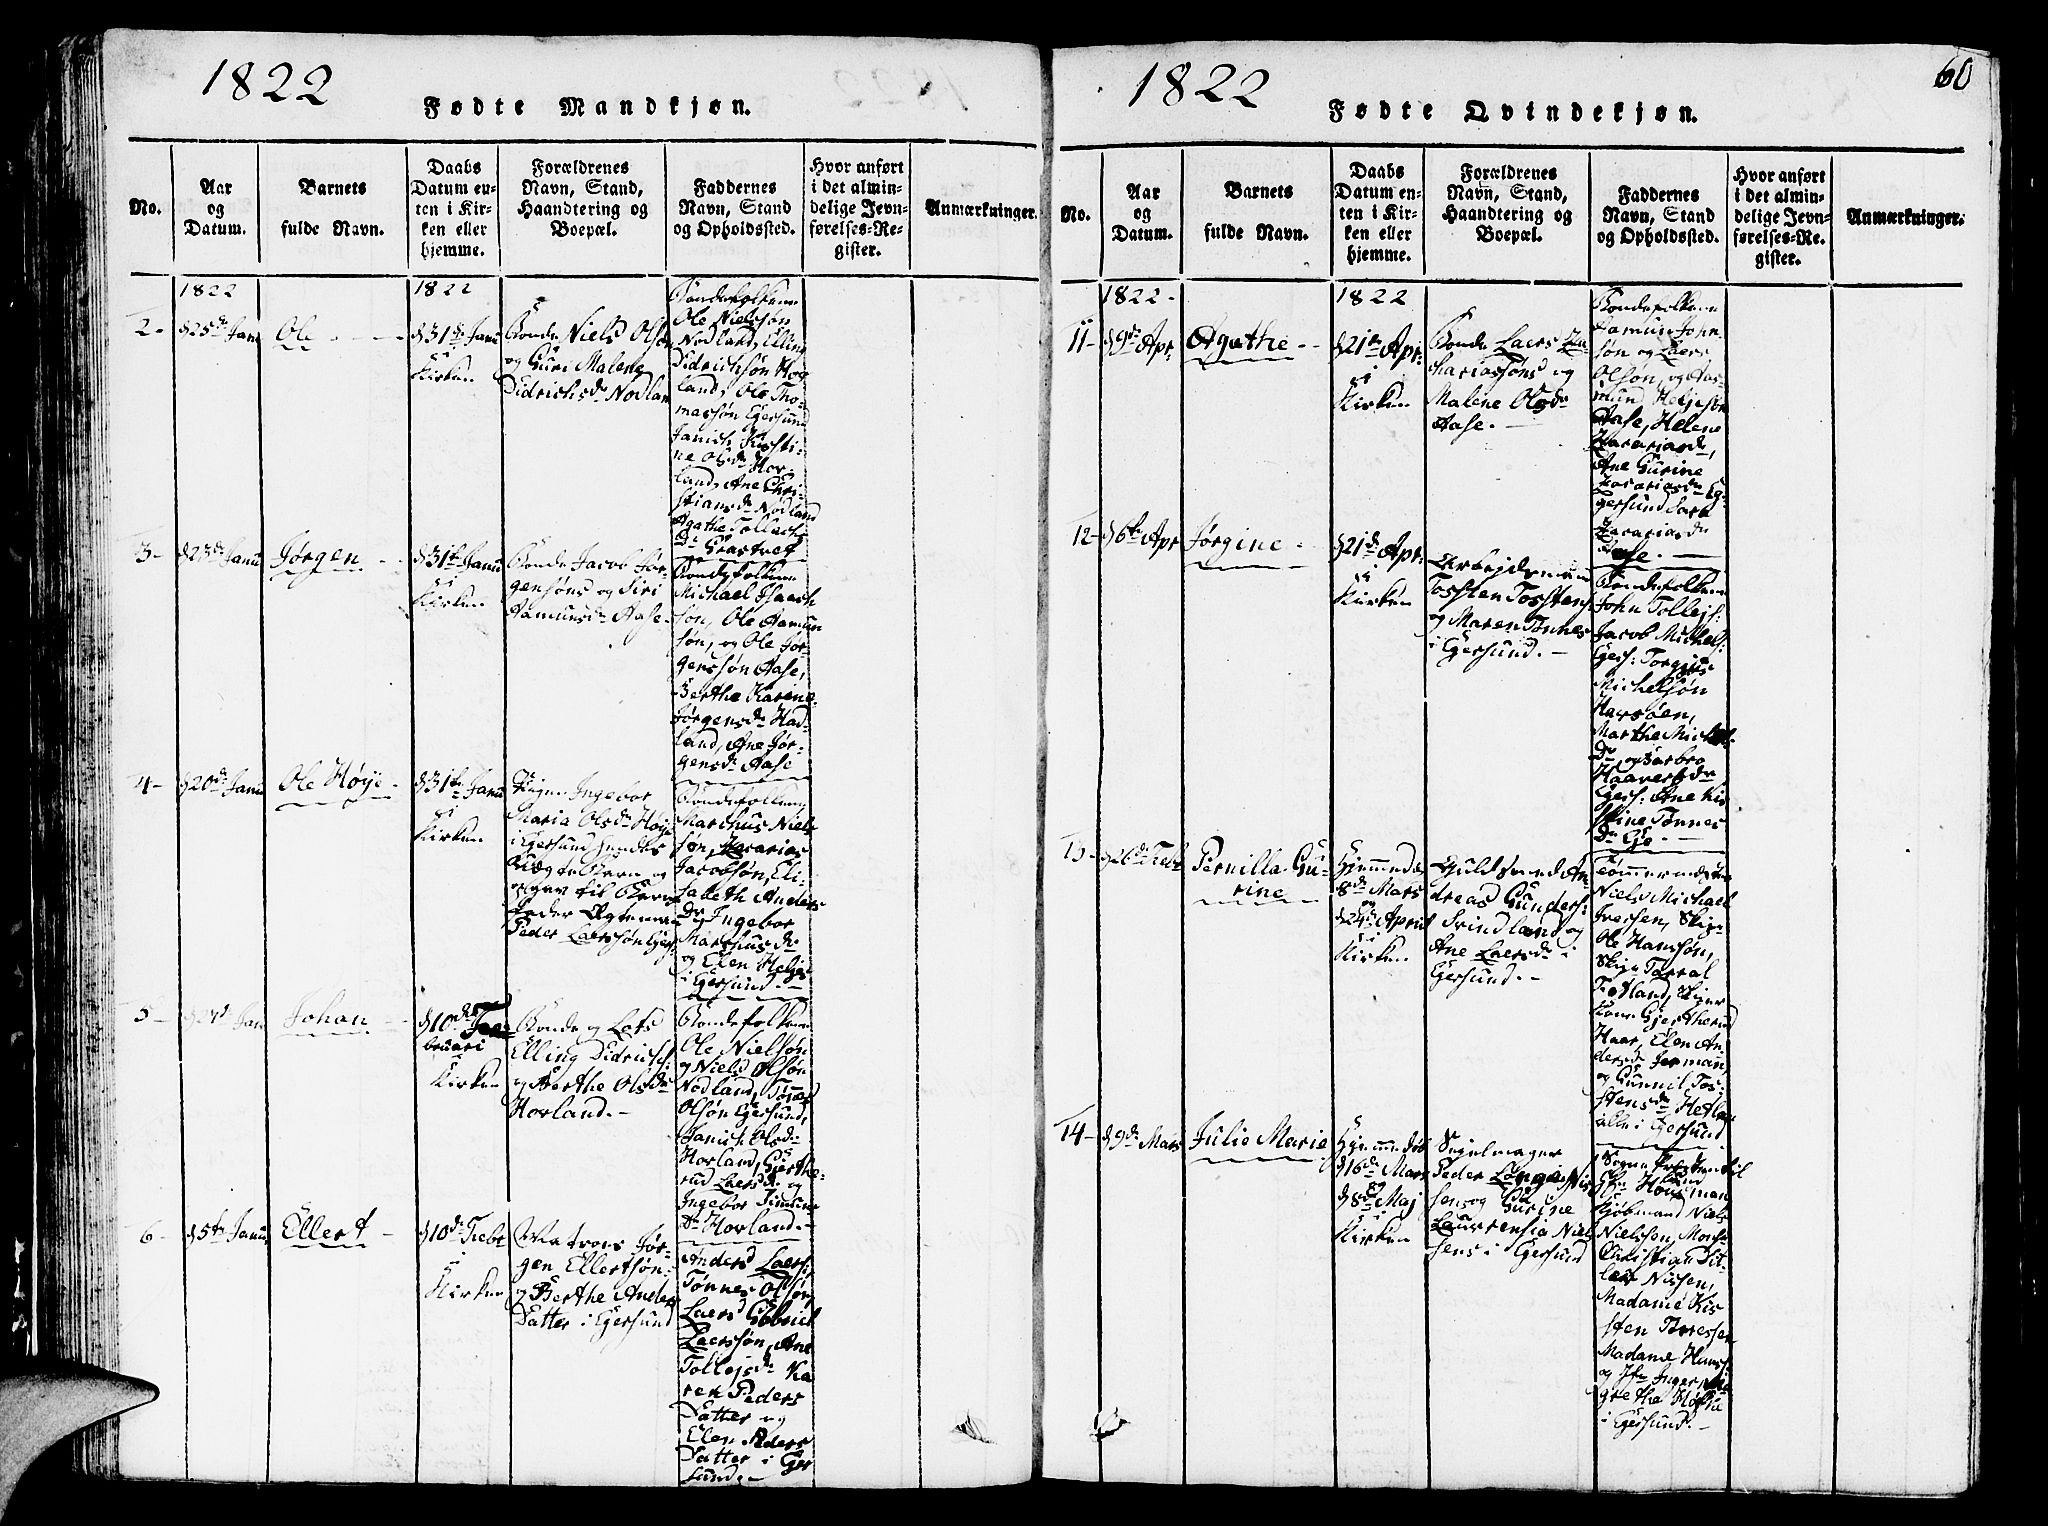 1822
Fødte Mandkjøn.
No.
Aar
og
Datum.
Barnets
fulde Navn.
Daabs
Datum en-
ten i Kir-
ken eller
hjemme.
Forældrenes
Navn, Stand,
Haandtering og
Boepæl.
Faddernes
Navn, Stand
og Opholdssted.
Hvor anført
i det almin-
delige Jevn-
førelses-Re-
gister.
Anmærkninger.
1822
2-
d 25de Janu
Ole
1822
d 31de Janu
i
Kirken
Bonde Niels Olsøn
og Guri Malene
Didrichsdr Nodland
Bondefolkene
Ole Nielsøn
Nodland, Elling
Didrichsøn Hor-
land, Ole Tho-
massøn Egersund
Janich Kirsti-
ne Olsdr Hor-
land, Ane Chri-
stiansdr Nodland
Agathe Tollachs
Dr
3-
d 23de Janu
Jørgen
d 31te Janu
i
Kirken
Bonde Jacob Jør-
gensøns og Siri
Aamundsdr Aase-
Bondefolkene
Michael Isach
søn, Ole Aamun
søn, og Ole Jør-
genssøn Aase,
Berthe Karine
Jørgensdr Had-
land, Ane Jør-
gensdr Aase
4-
d 20de Janu
Ole Høije
d 31te Janu
i
Kirken
Pigen Ingebor
Maria Olsdr Høije
i Egersund hendes
Uægte Barn og
opgav til Barne
fader Ægtemand
Peder Laerssøn Egers
Bondefolkene
Marchus Niels
søn, Zacarias
Jacobsøn, Eli-
sabeth Anders
Dr Ingebor
Marchusdr
og Elen Heljes
i Egersund.
5-
d 27de Jan
Johan
d 10de Fe-
bruari
i
Kirken
Bonde og Lots
Elling Didrichs:
og Berthe Olsdr
Horland.-
Bondefolkene
Ole Nielsøn
og Niels Olsøn
Nodland, Tønes
Olsøn Egersund,
Janich Olsdr
Horland, Gjerthe-
rud Laersdr og
Ingebor Simme
Dr Horland.-
6-
d 5te Janu
Ellert
d 10de Febr
i
Kirken
Matros Jør-
gen Ellertsøn
og Berthe Anders
Datter i Egersund
Anders Laers:
Tønnes Olsøn,
Laers Gabriel
Laerssøn, Ane
Tollejsdr Ka
ren Peders
Datter og
Elen Peders
Datter i Eger
sund.-
1822
60
Fødte Qvindekjøn.
No.
Aar
og
Datum.
Barnets
fulde Navn.
Daabs
Datum en-
ten i Kir-
ken eller
hjemme.
Forældrenes
Navn, Stand,
Haandtering og
Boepæl.
Faddernes
Navn, Stand
og Opholdssted.
Hvor anført
i det almin-
delige Jevn-
førelses-Re-
gister.
Anmærkninger.
1822.
11-
d 9de Apr
Agathe
1822
d 21de Apr:
i
Kirken
Bonde Laers Za-
chariassøns og
Malene Olsdr
Aase.-
Bondefolkene
Aamun John-
søn og Laers
Olsøn, og Aas-
mund Heljesøn
Aase, Helene
Zacariasdr,
Ane Gurine
Zacariasdr E-
gersund Sara
Zacariasdr
Aase.
12-
d 6te Apr
Jørgine
d 21de Apr:
i
Kirken
Arbejdsmand
Tossten Tosstens
og Maren Tønnes
i Egersund.-
Bondefolkene
John Tollejs:
Jacob Michels:
Egers: Torgius
Michelsøn
Havsøen,
Marthe Michels
Dr og Barbro
Haaversdr
Egers: Ane Kir
stine Tønnes
Dr Eje
13-
d 26de Febr
Pernilla Gu-
rine
Hjemmedøb
8de Mars
og
d 24de April
i
Kirken
Guldsmed An-
dreas Gunders:
Svindland og
Ane Laersdr i
Egersund.-
Tømmermester
Niels Michael
Ivessen, Skip:
Ole Hanssøn,
Skipr Tarral
Fotland, Skiper
Kone Gjertherud
Haar, Elen An
dersdr Jermann,
og Gunnil Tos-
stensdr Hetland
alle i Egersund
14-
d 9de Mars
Julie Marie
Hjemmedøb
d 16de Mars
og
d 8de Maj
i
Kirken
Segelmager
Peder Longie Nis
sen og Gurine
Laurensia Niel
sens i Egersund
Sogne Presten til
Housman
Kjøbmand Niels
Nielssen, Mons:
Christian Dit-
lev Nissen,
Madame Kir
sten Thressen
Madame Hauss:
og Jfr Inger Mar
grethe Høslu
i Egersund.-